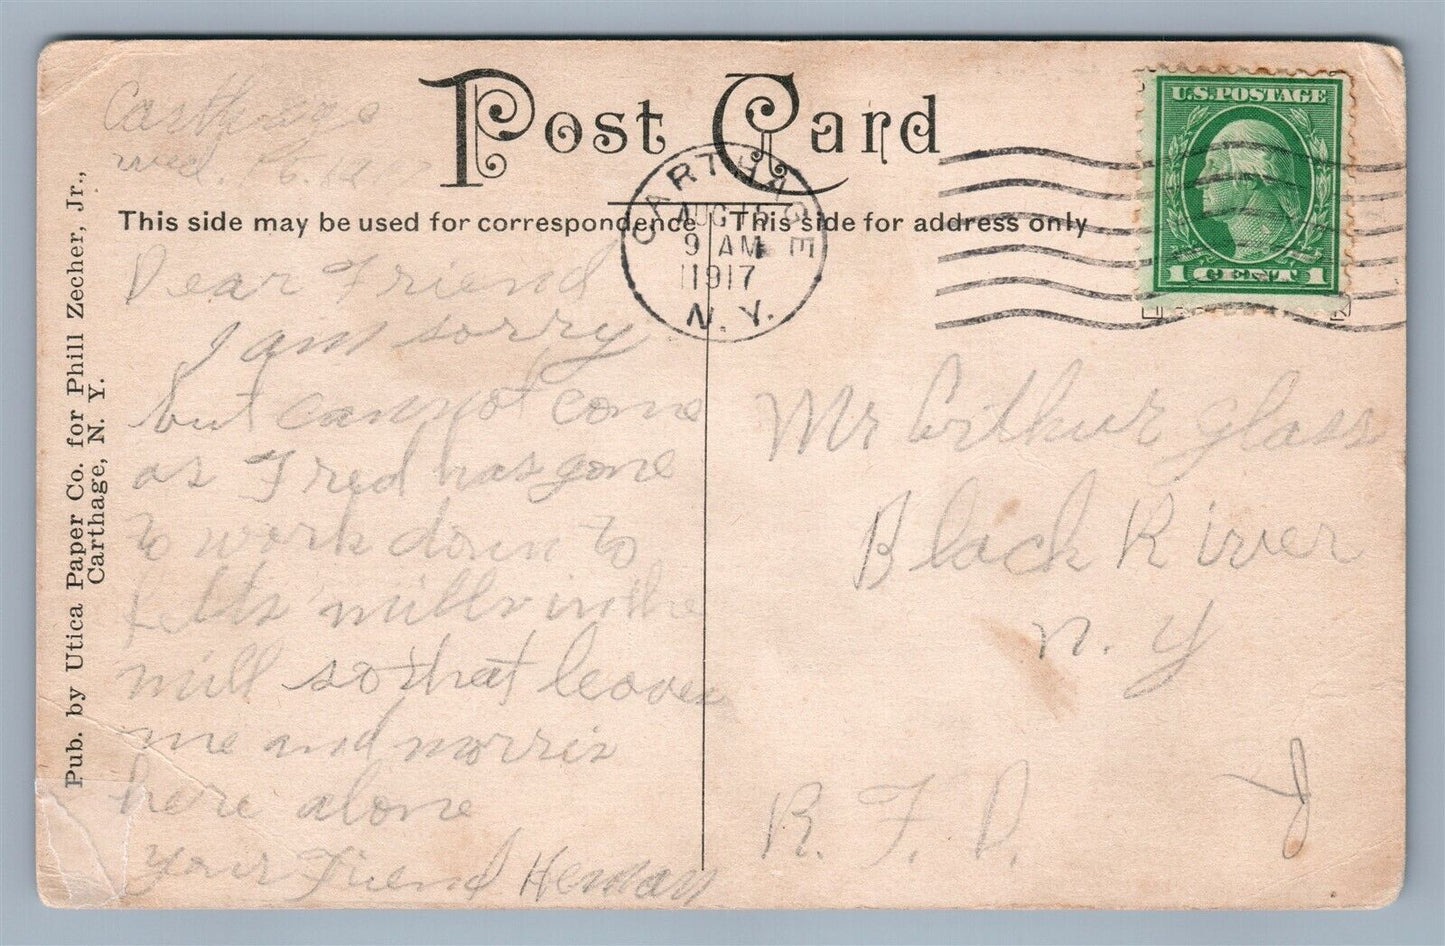 Post Card
This side may be used for correspondence
This side for address only
Pub. by Utica Paper Co. for Phill Zecher, Jr.,
Carthage, N. Y.
CARTHAGE
AUG 15
9 AM
1917
N. Y.
U.S. POSTAGE
1 CENT 1
Carthage
Wed.
Dear Friend
I am sorry
but cannot come
as Fred has gone
to work down to
mills in the
mill so that leaves
me and morris
here alone
Your Friend Herman
Mr Arthur Glass
Black River
N. Y
R. F. D.